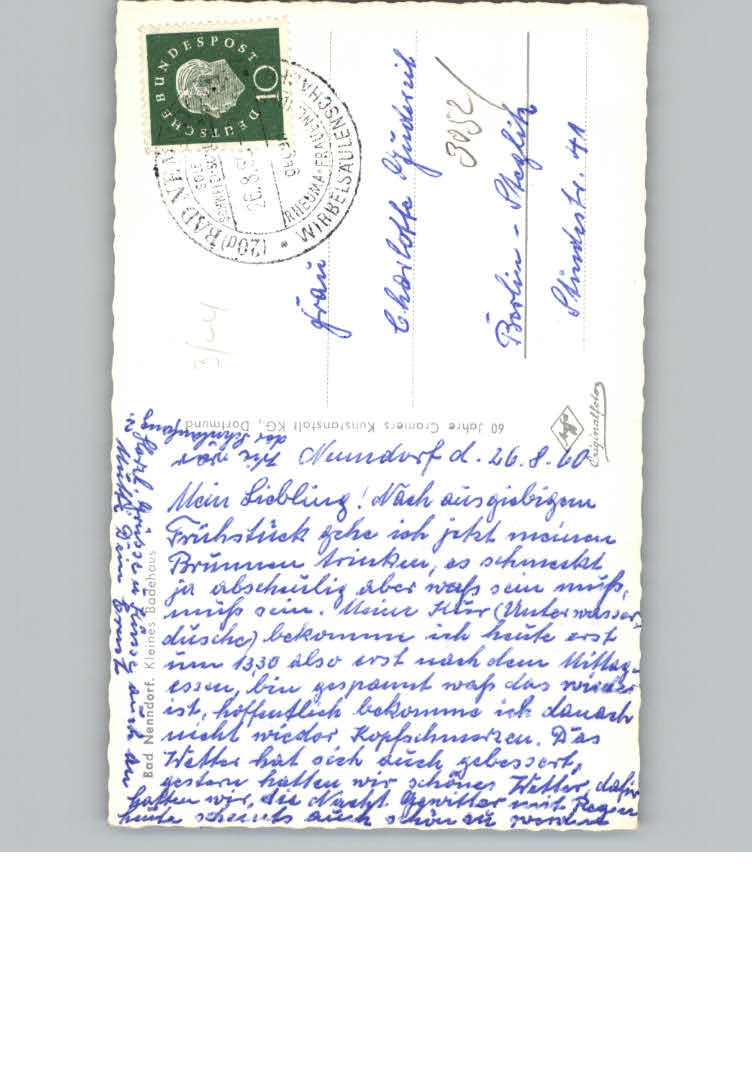 Nenndorf d. 26.8.60
Mein Liebling! Nach ausgiebigem
Frühstück gehe ich jetzt meinen
Brunnen trinken, es schmeckt
ja abscheulig aber waß sein muß,
muß sein. Meine Kur (Unterwasser-
dusche) bekomme ich heute erst
um 13,30 also erst nach dem Mittag-
essen, bin gespannt waß das wieder
ist, hoffentlich bekomme ich danach
nicht wieder Kopfschmerzen. Das
Wetter hat sich auch gebessert,
gestern hatten wir schönes Wetter, dafür
hatten wir, die Nacht Gewitter mit Regen
heute scheints auch schön zu werden
Herzl. Grüße u. Küsse auch an
Mutti Dein Ernst
Wie war
der Schulanfang
Bad Nenndorf. Kleines Badehaus
60 Jahre Cramers Kunstanstalt KG., Dortmund
Agfa
Originalfoto
DEUTSCHE BUNDESPOST
10
(20a) BAD
26.8.
RHEUMA-FRAUENL
WIRBELSÄULENSCHÄ
3052/
3/44
Frau
Charlotte
Berlin - Steglitz
Stindestr. 41